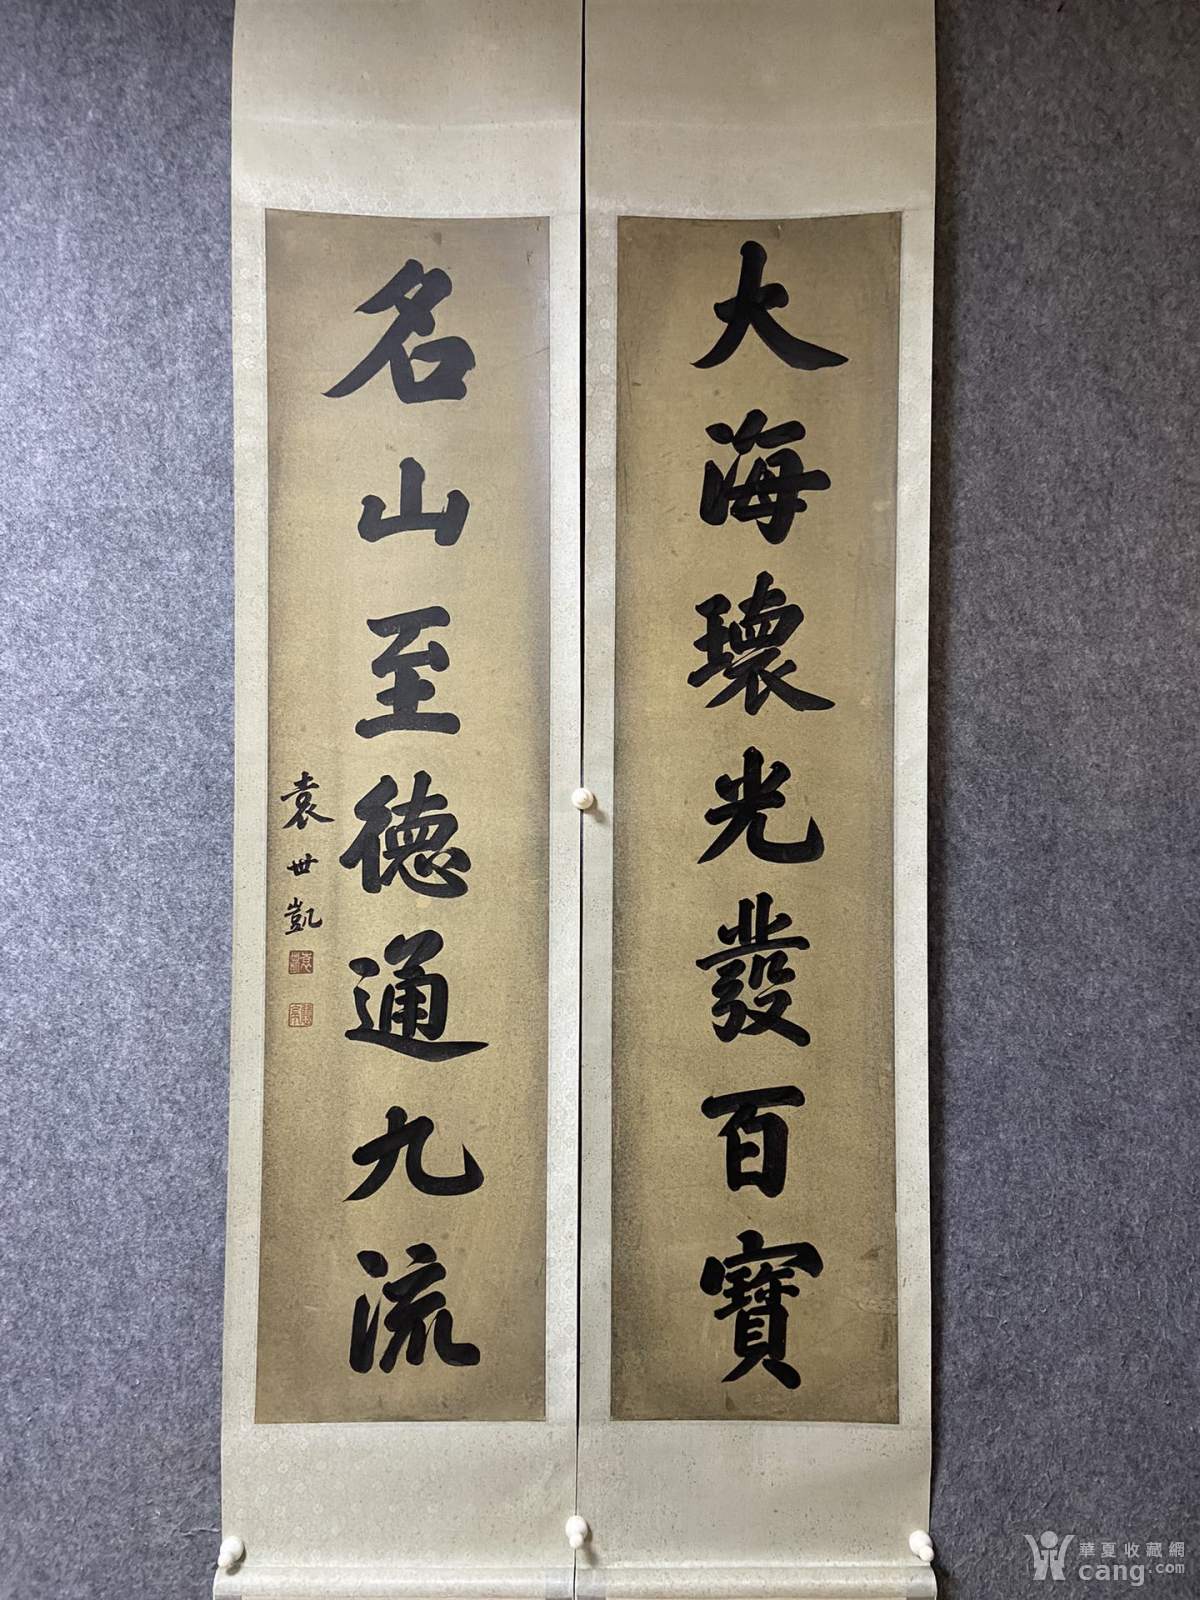 大海瓌光發百寶
名山至德通九流
袁世凱
華夏收藏網
cang.com